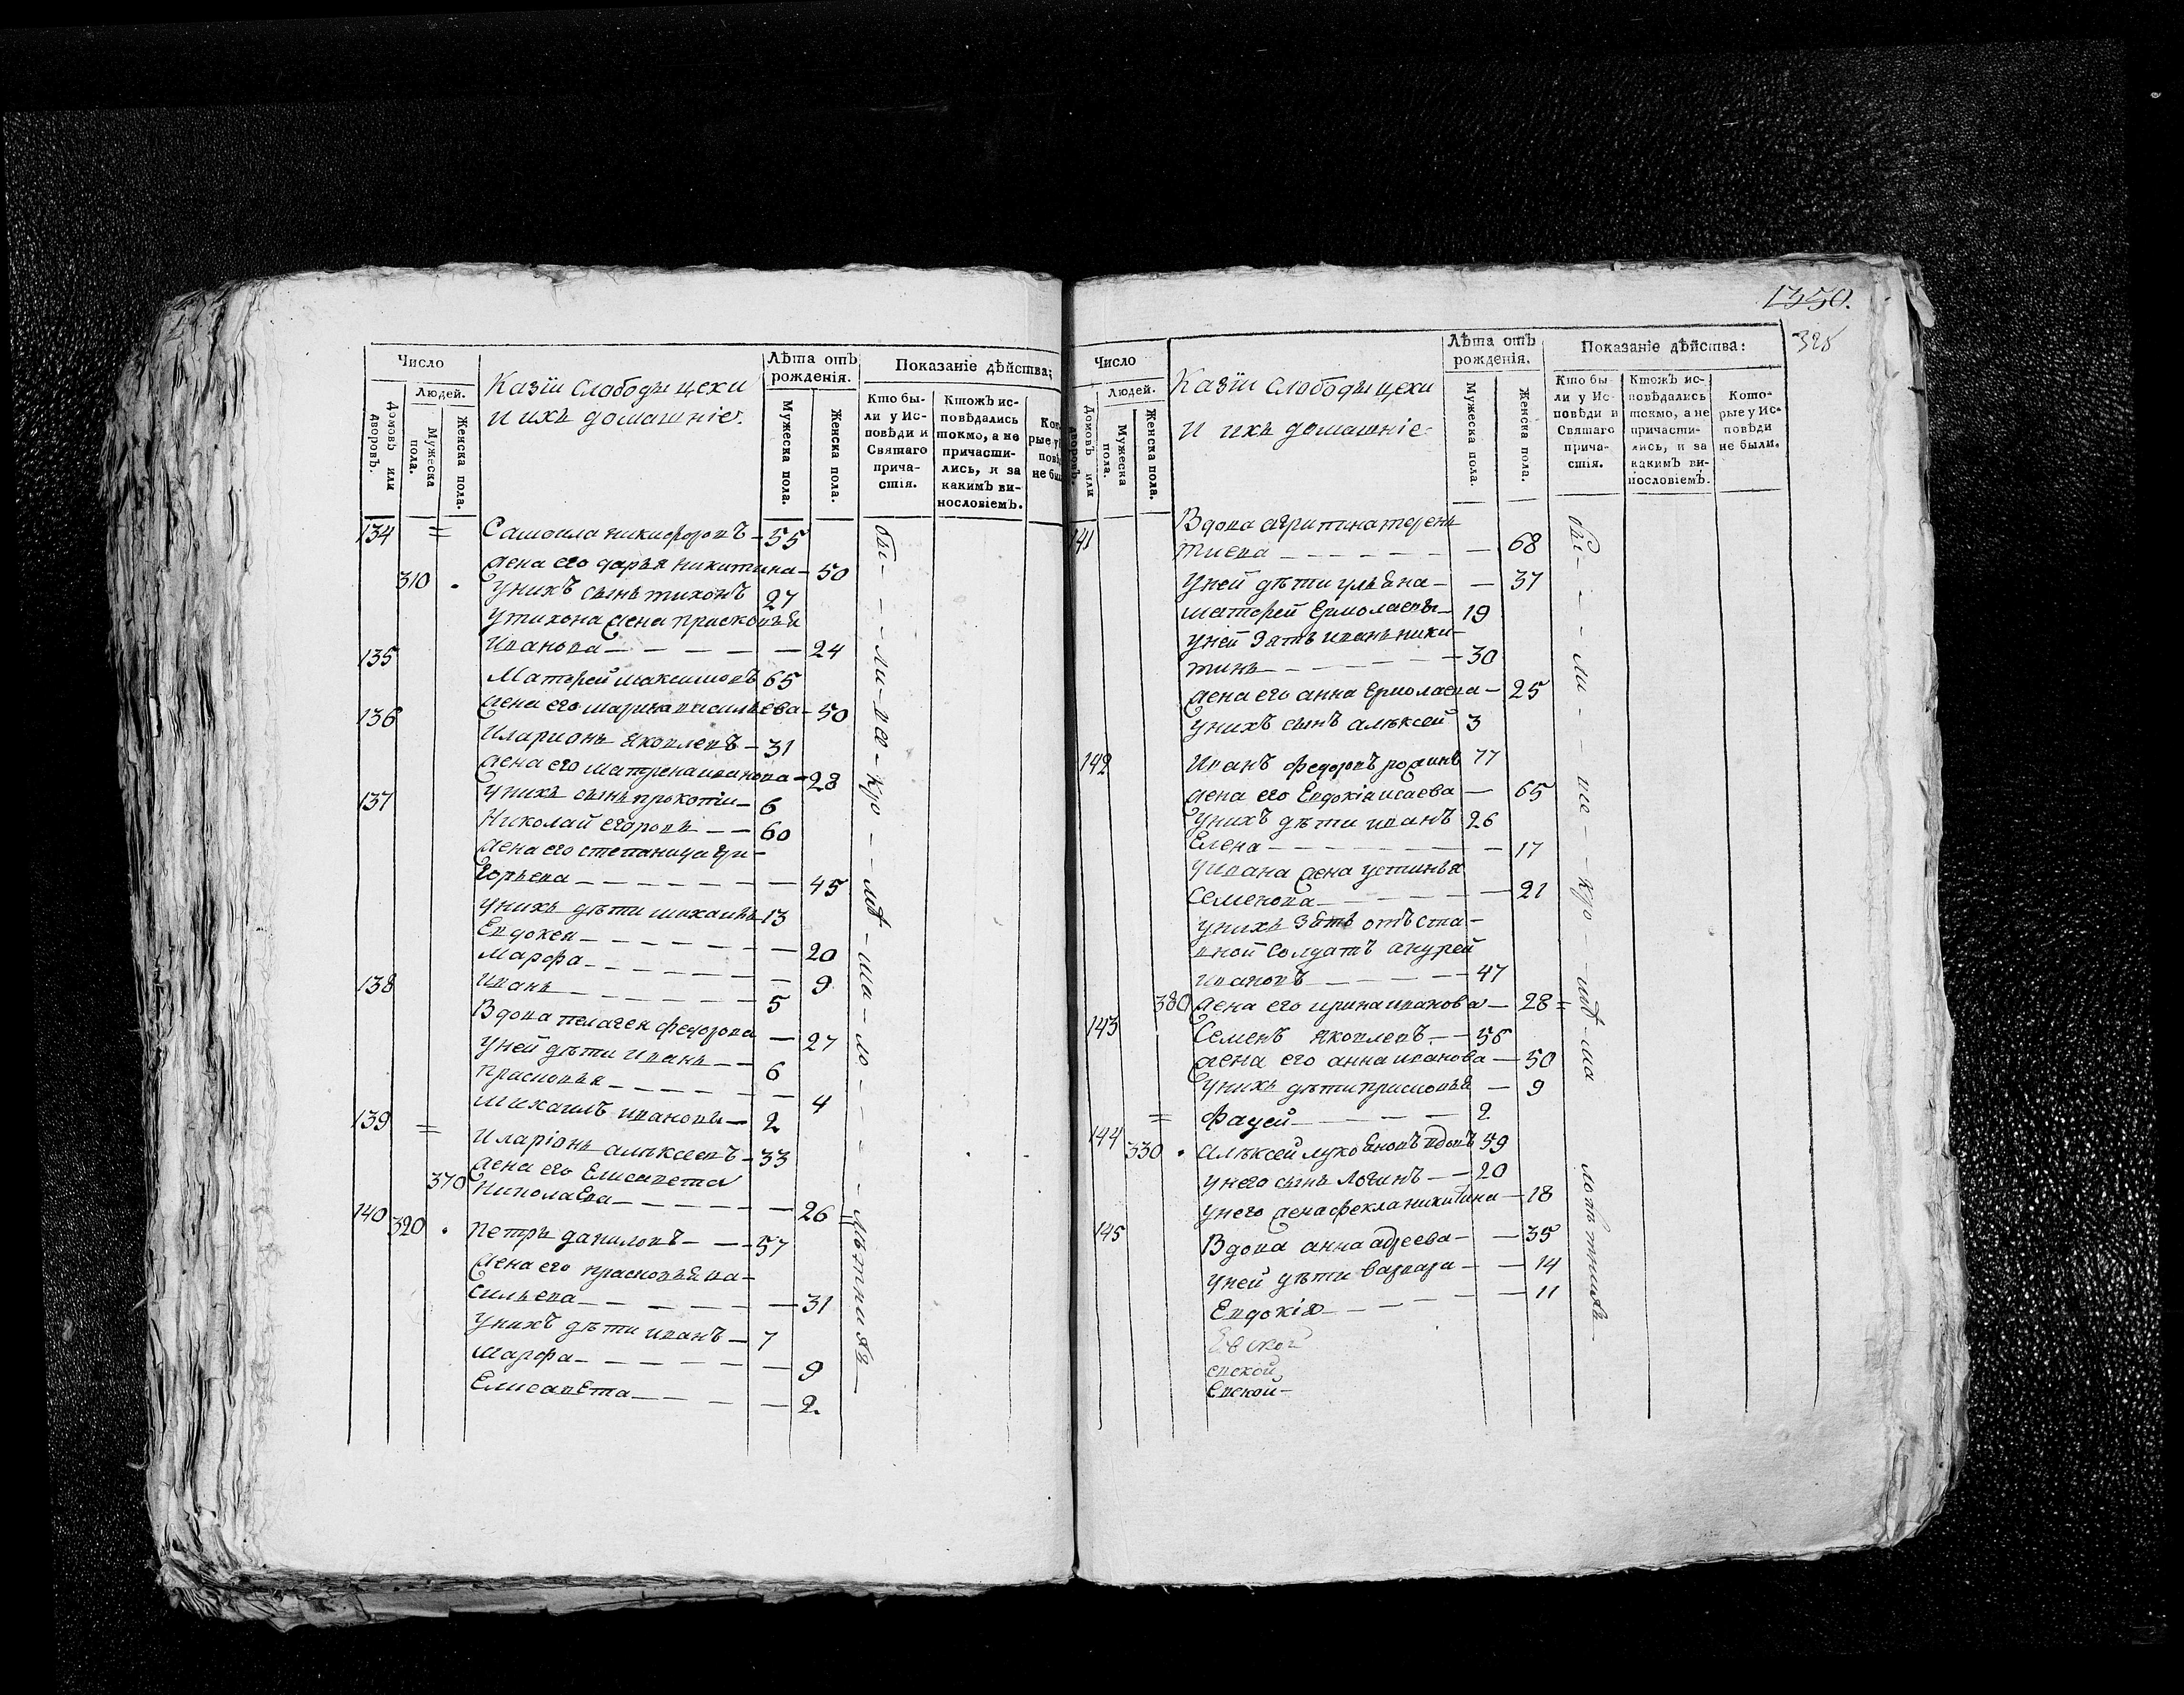 Число
Людей.
Домовъ или дворовъ.
Мужеска пола.
Женска пола.
Казїи Слободы цехи
И ихъ домашніе.
Лѣта отъ рожденія.
Мужеска пола.
Женска пола.
Показаніе дѣйства;
Кто были у Исповѣди и Святаго причастія.
Ктожъ исповѣдались токмо, а не причастились, и за какимъ винословіемъ.
134 = Самоила никифоровъ — 55
жена его дарья никитина — 50
310 . Унихъ сынъ тихонъ 27
Утихона жена прасковья
Иванова — — — — — 24
135 Матфей максимовъ 65
жена его марина васильева — 50
136 Иларионъ яковлевъ — 31
жена его матрена иванова — 28
Унихъ сынъ прокопіи — 6
137 Николай егоровъ — — 60
жена его степанида гри-
горьева — — — — — — — 45
Унихъ дѣти михаилъ — 13
Евдокея — — — — — — 20
Марфа — — — — — — 9
Иванъ — — — — — — 5
138 Вдова пелагея федорова — 27
Уней дѣти Иванъ — — 6
прасковья — — — — — 4
михаилъ ивановъ — 2
139 = Иларіонъ алѣксеевъ — 33
жена его Елисавета
370 Николаева — — — — — — 26 =
140 320 . петръ даниловъ — — 57
жена его прасковья ва-
сильева — — — — — — 31
Унихъ дѣти иванъ — 7
Марфа — — — — — — 9
Елисавета — — — — 2.
бы — — — ли — въ — Кро — — мѣ — ша — ло — — — лѣтнихъ —
1350.
325
Число
Людей.
Домовъ или дворовъ.
Мужеска пола.
Женска пола.
Казїи Слободы цехи
И ихъ домашніе
Лѣта отъ рожденія.
Мужеска пола.
Женска пола.
Показаніе дѣйства:
Кто были у Исповѣди и Святаго причастія.
Ктожъ исповѣдались токмо, а не причастились, и за какимъ винословіемъ.
Которые у Исповѣди не были.
141 Вдова агрипина терень
тиева — — — — — — — 68
Уней дѣти ульяна — — 37
матфей Ермолаевъ — 19
Уней зять иванъ ники-
тинъ — — — — — — 30
жена его анна Ермолаева — 25
Унихъ сынъ алѣксей 3
142 Иванъ федоровъ 77
жена его Евдокіа исаева — 65
Унихъ дѣти иванъ 26
Елена — — — — — — — 17
Уивана жена устинья
Семенова — — — — — 21
Унихъ зять отъста-
вной Солдатъ андрей
ивановъ — — — — — 47
380 жена его ирина иванова — 28 =
143 Семенъ яковлевъ — — 56
жена его анна иванова — 50
Унихъ дѣти прасковья — 9
= Фадей — — — — 2
144 330 . Алѣксей вдовъ 59
Унего сынъ Логинъ — — 20
Унего жена фекла никитина — 18
145 Вдова анна — — 35
Уней дѣти варвара — — 14
Евдокія — — — — — — 11
евской
евской
Евской —
бы — — — ли — — не — — Кро — — мѣ — ма лолѣтнихъ —